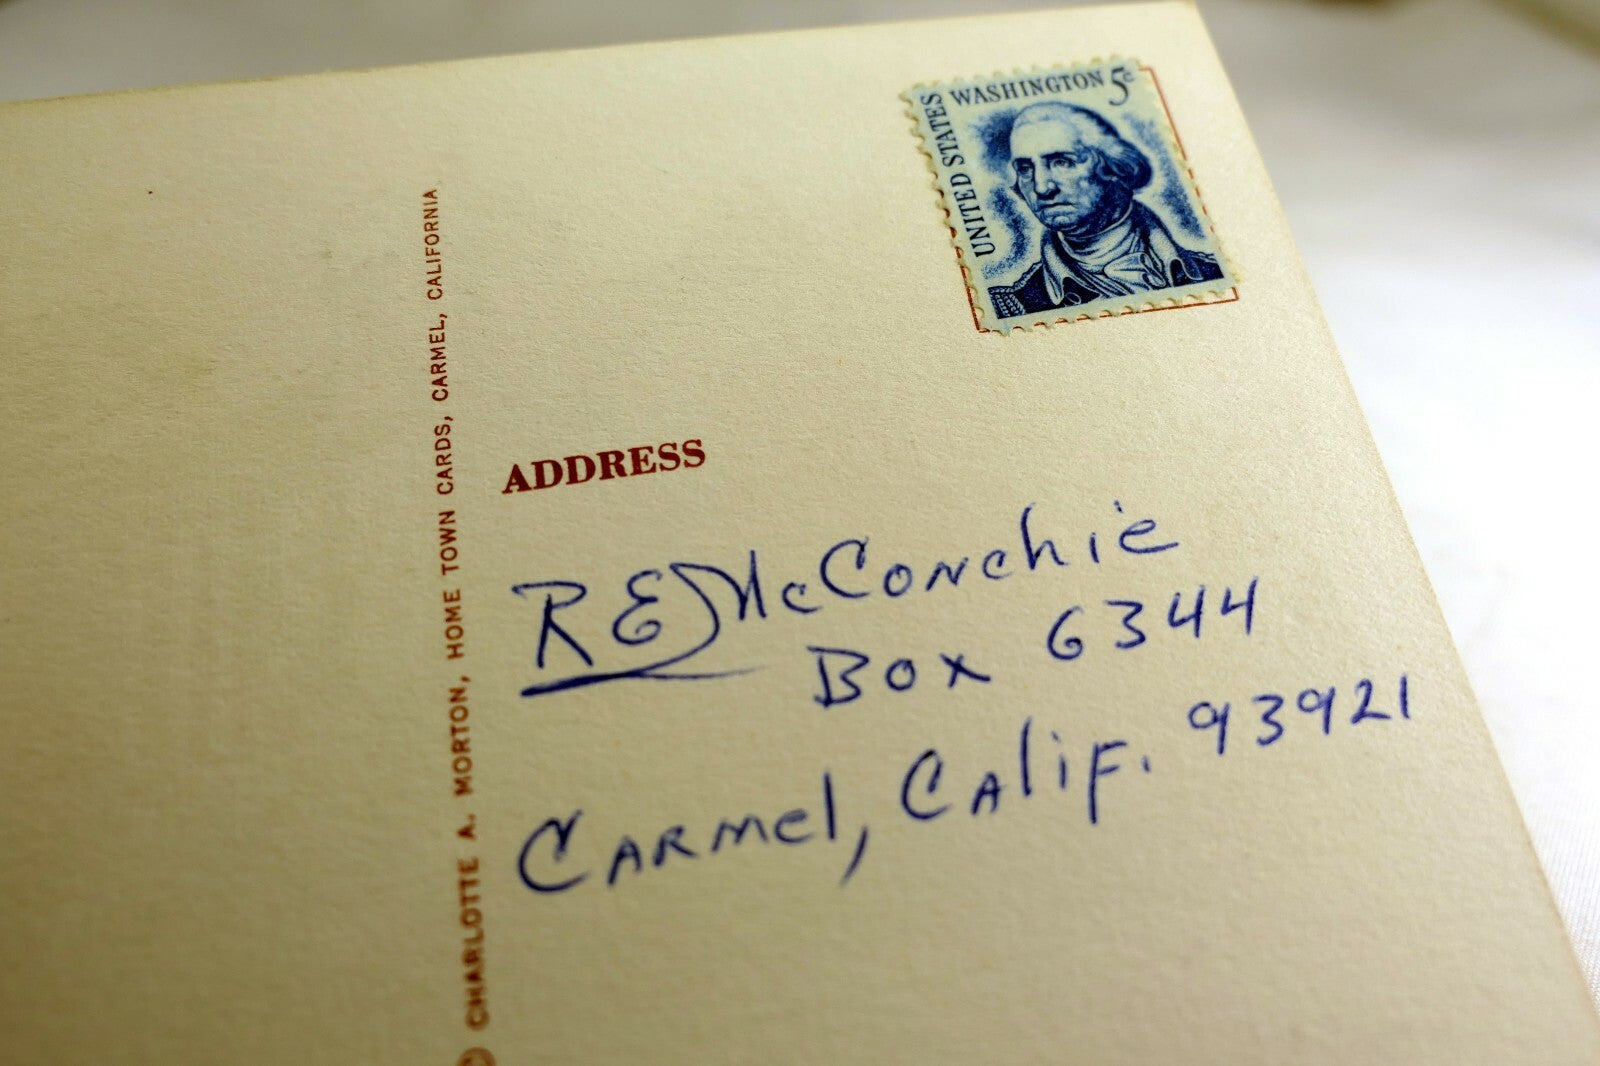 UNITED STATES
WASHINGTON 5c
© CHARLOTTE A. MORTON, HOME TOWN CARDS, CARMEL, CALIFORNIA
ADDRESS
RE McConchie
Box 6344
Carmel, Calif. 93921